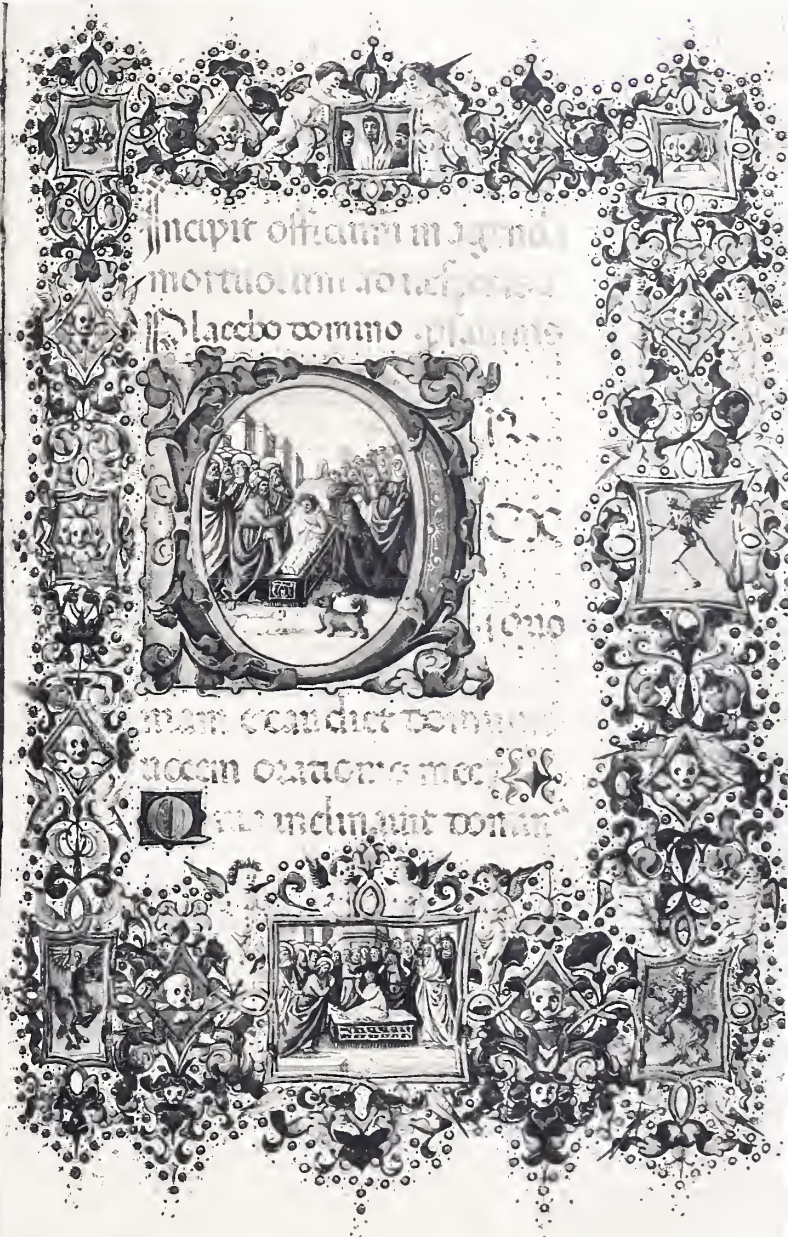 Incipit officium in agenda
mortuorum ad vesperas
Placebo domino psalmus
D
I
EX
iquo
niam exaudiet dominus
vocem orationis mee
Q inclinavit domin